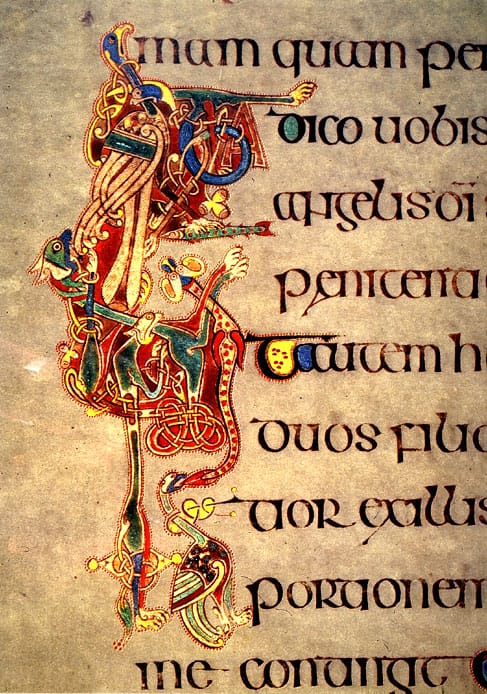 mam quam per
dico uobis
angelis dī s
penitentia
Ait autem h
duos filio
tior ex illis
portionem
me contingit